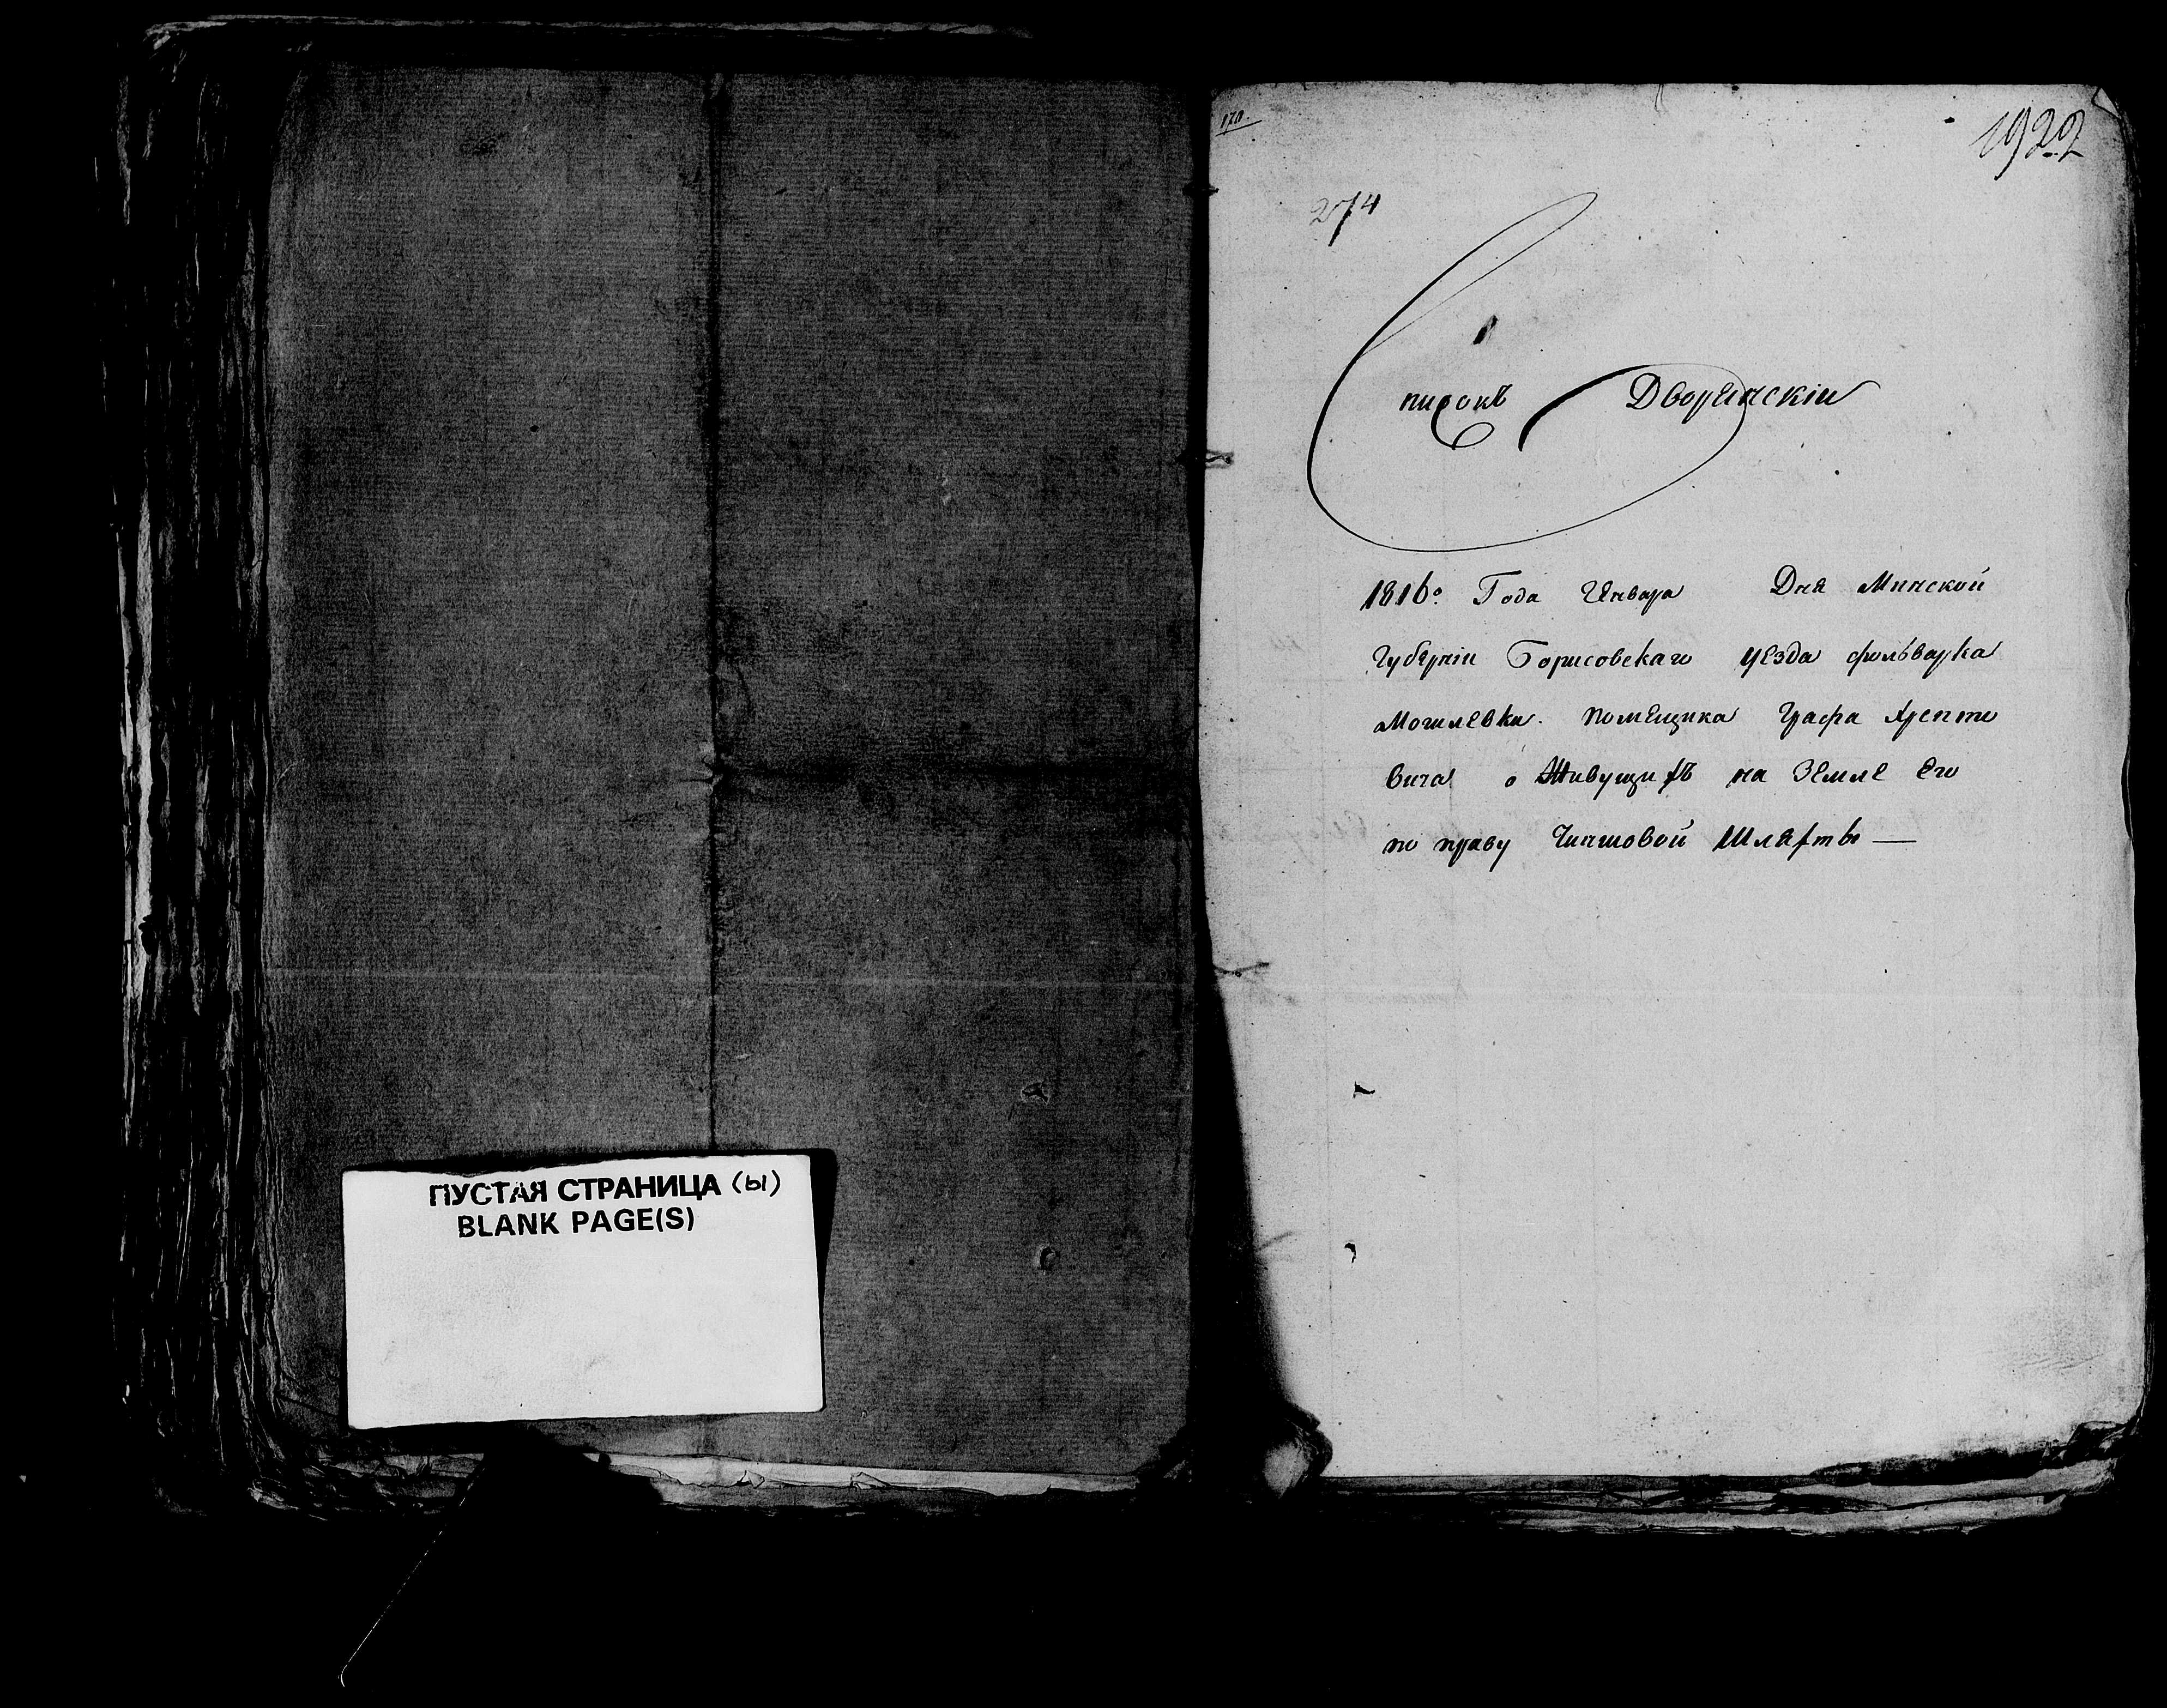 ПУСТАЯ СТРАНИЦА (ы)
BLANK PAGE(S)
1922
274
Списокъ Дворянскiи
1816º Года Января Дня Минской
Губернiи Борисовскаго уезда фольварка
Могилевки. помещика Графа Хрепто
вича о Живущихъ на Земле Его
по праву Чиншовой Шляхты —